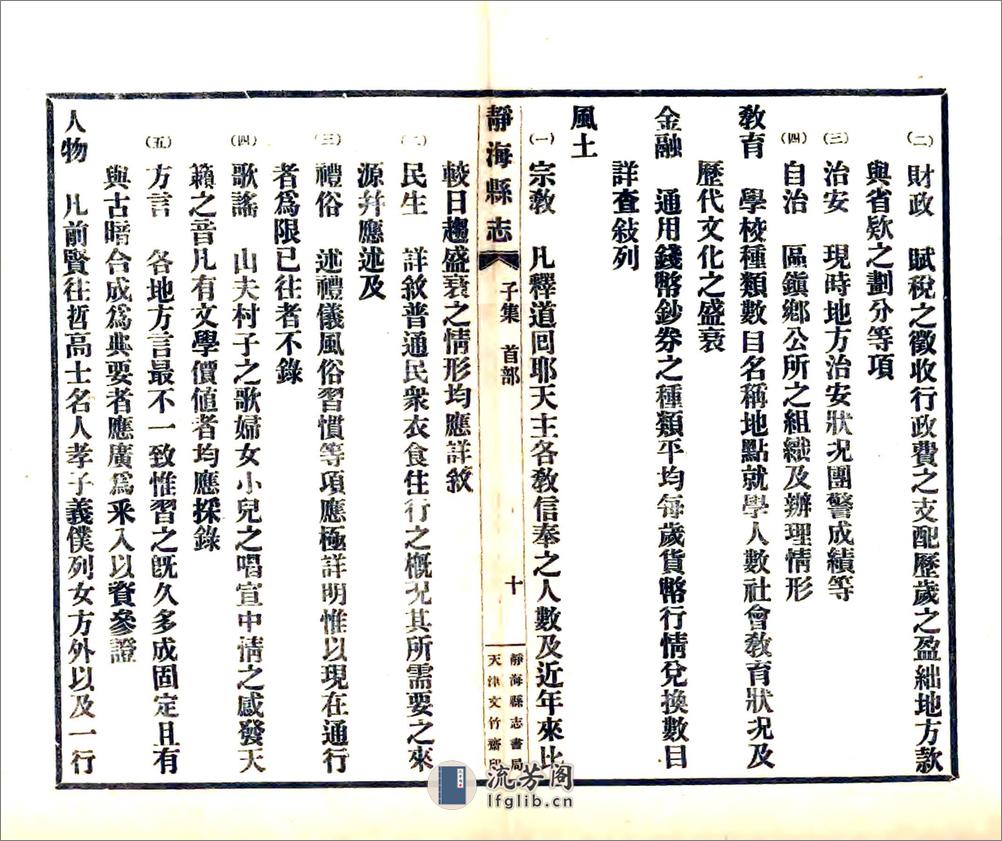 (二)財政　賦稅之徵收行政費之支配歷歲之盈絀地方款
與省欵之劃分等項
(三)治安　現時地方治安狀况團警成績等
(四)自治　區鎭鄕公所之組織及辦理情形
敎育　學校種類數目名稱地點就學人數社會敎育狀况及
歷代文化之盛衰
金融　通用錢幣鈔券之種類平均每歲貨幣行情兌換數目
詳查敍列
風土
(一)宗敎　凡釋道回耶天主各敎信奉之人數及近年來比
靜海縣志　子集　首部　十
靜海縣志書局
天津文竹齋印
較日趨盛衰之情形均應詳敘
(二)民生　詳敘普通民衆衣食住行之槪况其所需要之來
源幷應述及
(三)禮俗　述禮儀風俗習慣等項應極詳明惟以現在通行
者爲限已往者不錄
(四)歌謠　山夫村子之歌婦女小兒之唱宣中情之感發天
籟之音凡有文學價値者均應採錄
(五)方言　各地方言最不一致惟習之旣久多成固定且有
與古暗合成爲典要者應廣爲采入以資參證
人物　凡前賢往哲高士名人孝子義僕列女方外以及一行
流芳阁
lfglib.cn